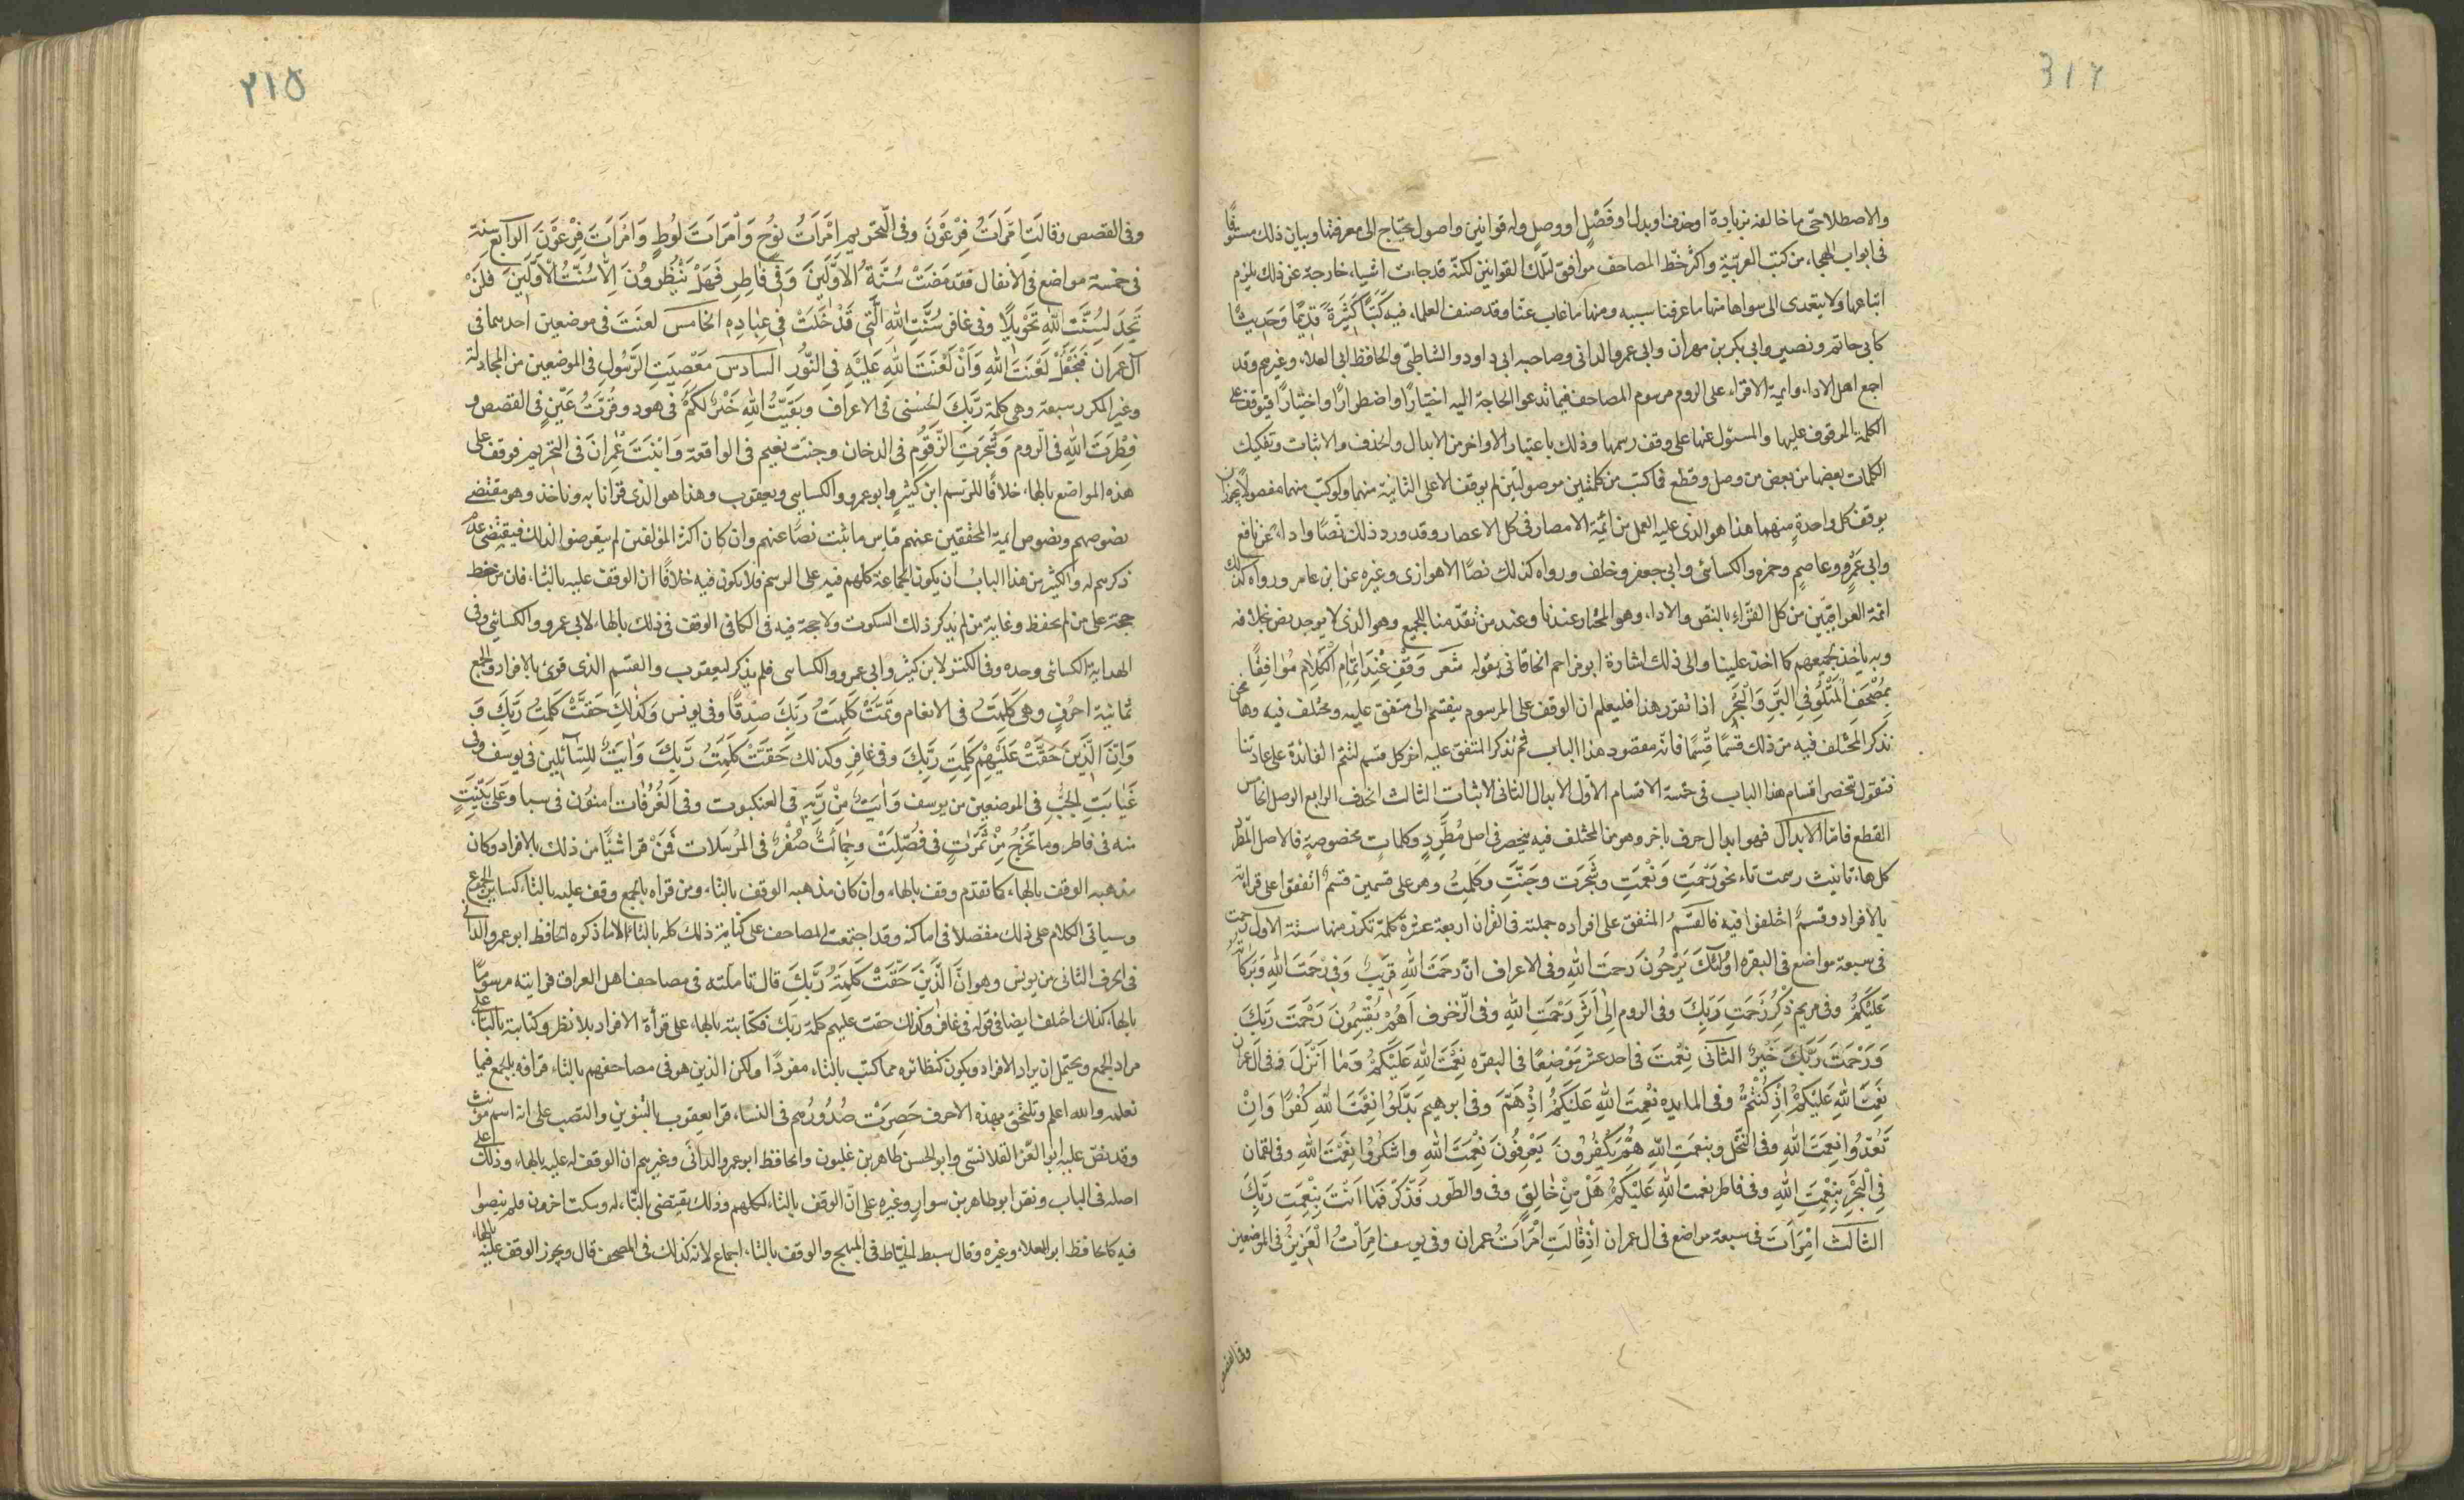 والاصطلاحی ما خالفه بزیادة اوحذف اوبدل اوفَصْلٍ او وصلٍ وله قوانین واصول یحتاج الی معرفتها وبیان ذلك مستوفًا
فی ابواب الهجاء، من کتب العربیّة واکثر خط المصاحف موافق لتلك القوانین لکنّه قد جاءت اشیاء، خارجة عن ذلك یلزم
اتباعها ولا یتعدی الی سواها منها ما عرفنا سببه ومنها ما غاب عنّا وقد صنف العلماء، فیه کُتبًا کَثِیرَةً قدیمًا وَحَدِیثًا
کابی حاتم ونصیر وابی بکر بن مهران وابی عمرو الدانی وصاحبه ابی داود والشاطبی والحافظ ابی العلاء، وغیرهم وقد
اجمع اهل الاداء، وایمة الاقراء علی لزوم مرسوم المصاحف فیما تدعو الحاجة الیه اختیارًا واضطرارًا واختبارًا فیوقف علی
الکلمة الموقوف علیها والمسئول عنها علی وفق رسمها وذلك باعتبار الاواخر من الابدال والحذف والاثبات وتفکیك
الکلمات بعضها من بعض من وصل وقطع فما کتب من کلمتین موصولتین لم یوقف الا علی الثانیة منهما وما کتب منهما مفصولا یجوز ان
یوقف کل واحدةٍ منهما هذا هو الذی علیه العمل من ائمّة الامصار فی کل الاعصار وقد ورد ذلك نصًّا واداءً، عن نافع
وابی عَمْرٍو وعاصمٍ وحمزه والکسائی وابی جعفر وخلف ورواه کذلك نصًا الاهوازی وغیره عن ابن عامر ورواه کذلك
ائمة العراقیّین من کل القرّاءِ بالنص والاداء، وهو المختار عندنا وعند من تقدّمنا للجمیع وهو الذی لا یوجد نص بخلافه
وبه یاخذ لجمیعهم کما اخذ علینا والی ذلك اشارة ابو مزاحم الخاقانی بقوله شعر وَقِفْ عِنْدَ اِتمامِ الکَلامِ مُوَافِقًا
بمُصْحَفِ الْمَتْلُوِّ فِی البَرِّ وَالْبَحْرِ اذا تقرر هذا فلیعلم ان الوقف علی المرسوم ینقسم الی متفق علیه ومختلف فیه، وها نحن
نذکر المختلف فیه من ذلك قِسْمًا قِسْمًا فانّه مقصود هذا الباب ثم نذکر المتفق علیه اخر کل قسم لتتمّ الفائدة علی عادتنا
فنقول تنحصر اقسام هذا الباب فی خمسة الاقسام الاوّل الابدال الثانی الاثبات الثالث الحذف الرابع الوصل الخامس
القطع فامّا الابدال فهو ابدال حرف باخر وهو من المختلف فیه ینحصر فی اصل مُطَّرِدٍ وکلماتٍ مخصوصةٍ فالاصل المطّرد
کل هاء، تانیث رسمت تاء نحو رَحْمَتِ وَنْعمَتِ وشَجَرَت وجَنَّتِ وکَلِمتُ وهو علی قسمین قسمٌ اتفقوا علی قراءته
بالافراد وقسمٌ اختلفوا فیه فالقسمُ المتفق علی افراده جملته فی القران اربعة عشرة کلمة تکرّر منها ستة الاول رحمت
فی سبعة مواضع فی البقره اُولئِكَ یَرْجُونَ رَحمَتَ اللهِ وفی الاعراف انّ رحمَتَ اللهِ قَرِیبٌ وَفی رَحْمَتَ اللهِ وَبَرَکاتُه
عَلَیْکُمْ وفی مریم ذِکْرُ رَحْمَتِ رَبِّكَ وفی الروم اِلَی اٰثَرِ رَحْمَتِ اللهِ وفی الزّخرف اَهُمْ یَقْسِمُونَ رَحْمَتَ رَبِّكَ
وَرَحْمَتَ رَبِّكَ خَیْرٌ الثانی نِعْمتَ فی احد عشر مَوْضِعًا فی البقره نِعْمَتَ اللهِ عَلَیْکُمْ وَمَا اَنْزَلَ وفی ال عمران
نِعْمَتَ اللهِ عَلَیْکُمْ اذْکُنتُمْ وفی المایده نْعمَتَ اللهِ عَلَیْکُمْ اِذْ هَمَّ وفی ابرهیم بَدَّلُوا نِعْمَتَ اللهِ کُفْرًا وَاِنْ
تَعُدّوُا نِعمَتَ اللهِ وفی النّحْل وبنعمَتِ اللهِ هُمْ یَکْفُرُونَ یَعْرِفُونَ نِعْمَتَ اللهِ وَاشْکُرُوا نِعْمَتَ اللهِ وفی لقمان
فِی الْبَحْرِ بِنِعْمَتِ اللهِ وفی فاطر نعمت اللهِ عَلَیْکُمْ هَلْ مِنْ خَالِقٍ وفی والطّور فَذَکِّرْ فَمَا اَنْتَ بِنِعْمَتِ رَبِّكَ
الثالث امْرَاَتَ فی سبعة مواضع فی ال عمران اذْقَالَتِ امْرَاَتُ عمران وفی یوسف امْرَاَتُ الْعَزِیْزِ فی الموضعین
وفی القصص
وفی القصص وقالَتِ امْرَاَتُ فِرْعَوْنَ وفی التّحریم امْرَاَتَ نوُحٍ وَامْرَاَتَ لوُطٍ وَامْرَاَتَ فِرْعَوْنَ الرابع سنة
فی خمسة مواضع فی الانفال فقد مَضَتْ سُنَّةُ الاَوَّلِینَ وَفی فاطِرِ فَهَلْ یَنْظُرُونَ اِلّا سُنَّتَ الْاَوَّلِینَ فَلَنْ
تَجِدَ لِسُنَّتِ اللهِ تَحْوِیلًا وفی غافر سُنَّتِ اللهِ الَّتی قَدْ خَلَتْ فی عِبَادِهِ الخامس لعنَتَ فی موضعین احدهما فی
آل عمران فنَجْعَلْ لَعْنَتَ اللهِ وَاَنَّ لَعْنَتَ اللهِ عَلَیْهِ فی النُّور السادس مَعْصِیَتِ الرَّسُولِ فی الموضعین من المجادلة
وغیر المکرر سبعة وهی کلمة رَبِّكَ الحُسْنی فی الاعراف وبَقِیّتُ اللهِ خَیْرٌ لَکُمْ فی هود وقُرَّتُ عَیْنٍ فی القصص و
فِطْرَتَ اللهِ فی الرّوم وشَجَرَتِ الزّقُومِ فی الدخان وجنت نعیم فی الواقعة وَابْنَتَ عِمْرانَ فی التحریم فوقف علی
هذه المواضع بالهاء، خلافًا للرّسم ابن کثیر وابو عمرو والکسایی ویعقوب وهذا هو الذی قرانا به وناخذ وهو مقتضی
نصوصهم ونصوص ایمة المحققین عنهم قیاس ما ثبت نصًا عنهم وان کان اکثر المؤلفین لم یتعرضوا لذلك فیقتضی عدم
ذکرهم له والکثیر من هذا الباب ان یکون الجماعة کلهم فیه علی الرسم فلا یکون فیه خلافًا ان الوقف علیه بالتاء، فان من حفظ
حجة علی من لم یحفظ وغایة من لم یذکر ذلك السکوت ولا حجة فیه فی الکافی الوقف فی ذلك بالهاء، لابی عمرو والکسائی وفی
الهدایة الکسائی وحده وفی الکنز لابن کثیر وابی عمرو والکسایی فلم یذکر لیعقوب والقسم الذی قرئ بالافراد والجمع
ثمانیة احْرُفٍ وهی کَلِمَتُ فی الانعام وَتَمَّتْ کَلِمَتُ رَبِّكَ صِدْقًا وفی یونس وکذٰلِكَ حَقَّتْ کَلِمَتُ رَبِّكَ وَ
وَاِنَّ الَّذِینَ حَقَّتْ عَلَیْهِمْ کَلِمَتِ رَبِّكَ وفی غافِرِ وکذلك حَقَّتْ کَلِمَتُ رَبِّكَ وَاٰیَتٌ للِسَّائلِین فی یوسف وفی
غَیٰابَتِ الجُبِّ فی الموضعین من یوسف وَاٰیَتٌ مِنْ رَبِّهِ فی العنکبوت وفی الغُرُفَات امنوُن فی سبا وعَلی بَیِّنَتٍ
منه فی فاطر وما تخْرُجُ مِنْ ثَمَرَتٍ فی فُصِّلَتْ وجِمَالَتٌ صُفْرٌ فی المُرْسَلات فَمَنْ قرا شیًا من ذلك بالافراد وکان
مذهبه الوقف بالهاء، کما تقدم وقف بالهاء، وان کان مذهبه الوقف بالتاء، ومن قراه بالجمع وقف علیه بالتاء، کسایر الجموع
وسیاتی الکلام علی ذلك مفصلا فی اماکنه وقد اجتمعت المصاحف علی کتابة ذلك کله بالتاء، الا ما ذکره الحافظ ابو عمرو الدانی
فی الحرف الثانی من یونس وهو اِنَّ الَّذِینَ حَقَّتْ کَلِمَتُ رَبِّكَ قال تاملته فی مصاحف اهل العراق فرایته مرسومًا
بالهاء، کذلك اختلف ایضا فی قوله فی غافر وکذلك حقت علیهم کلمة ربك فکتابته بالهاء، علی قراة الافراد بلا نظر وکتابته بالتاء، علی
مراد الجمع ویحتمل ان یراد الافراد ویکون کنظائره مما کتب بالتاء، مفردًا ولکن الذین هو فی مصاحفهم بالتاء، قراؤه بالجمع فیما
نعلمه والله اعلم ویلتحق بهذه الاحرف حَصِرَتْ صُدُورُهم فی النساء، قرا یعقوب بالتنوین والنصب علی انه اسم مؤنث
وقد نصّ علیه ابو العز القلانسی وابو الحسن طاهر بن غلبون والحافظ ابو عمرو الدانی وغیرهم ان الوقف له علیه بالهاء، وذلك علی
اصله فی الباب ونص ابو طاهر بن سوار وغیره علی انّ الوقف بالتاء، لکلهم وذلك یقتضی بالتّاء، له وسکت اخرون فلم ینصوا
فیه کالحافظ ابو العلاء، وغیره وقال سبط الخیّاط فی المبهج والوقف بالتاء، اجماع لانه کذلك فی المصحف قال ویجوز الوقف علیه بالهاء،
٢١٥